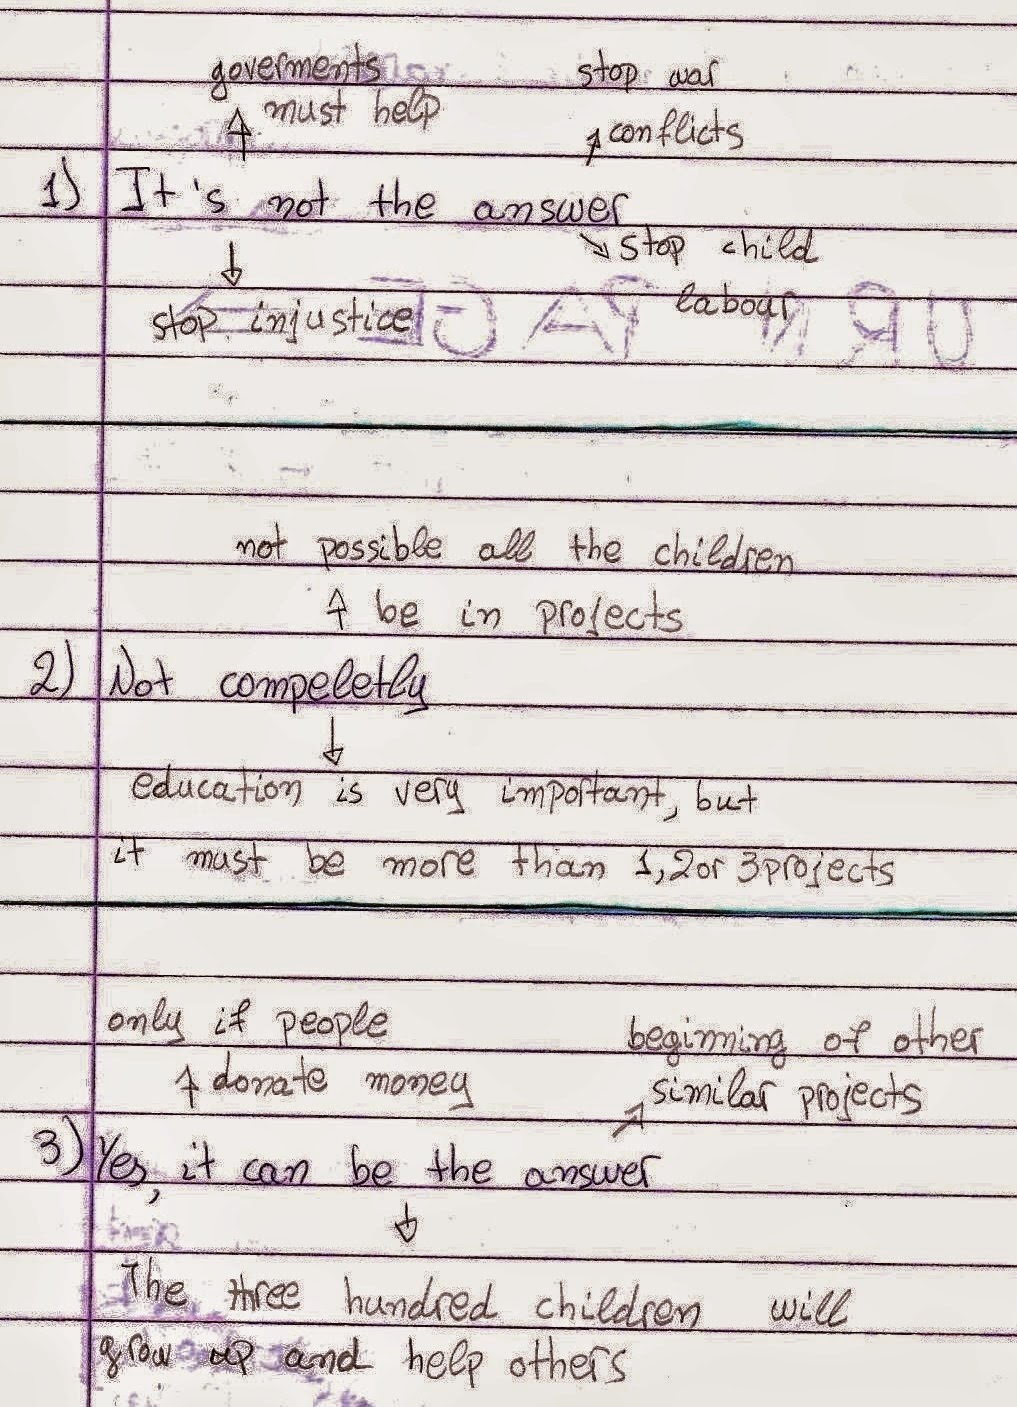 goverments stop war
must help conflicts
1) It's not the answer
stop child
labour
stop injustice
not possible all the children
be in projects
2) Not compeletly
education is very important, but
it must be more than 1, 2 or 3 projects
only if people beginning of other
donate money similar projects
3) Yes, it can be the answer
The three hundred children will
grow up and help others